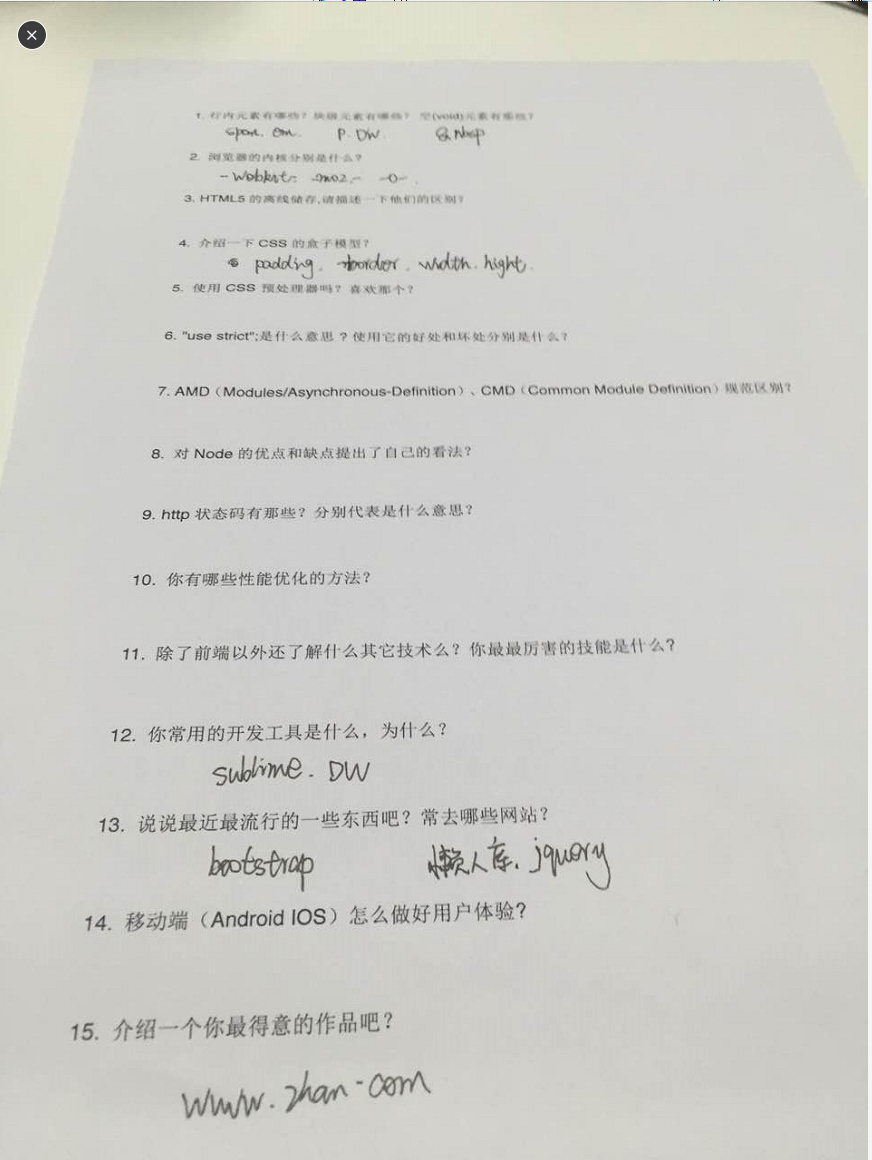 1. 行内元素有哪些？块级元素有哪些？ 空(void)元素有那些？
span. em. P. DIV &Nbsp
2. 浏览器的内核分别是什么？
-Webkit- -moz- -o-
3. HTML5 的离线储存,请描述一下他们的区别？
4. 介绍一下 CSS 的盒子模型？
padding. border. width. hight.
5. 使用 CSS 预处理器吗？喜欢那个？
6. "use strict";是什么意思 ? 使用它的好处和坏处分别是什么？
7. AMD（Modules/Asynchronous-Definition）、CMD（Common Module Definition）规范区别？
8. 对 Node 的优点和缺点提出了自己的看法？
9. http 状态码有那些？分别代表是什么意思？
10. 你有哪些性能优化的方法？
11. 除了前端以外还了解什么其它技术么？你最最厉害的技能是什么？
12. 你常用的开发工具是什么，为什么？
sublime. DW
13. 说说最近最流行的一些东西吧？常去哪些网站？
bootstrap 懒人库. jquery
14. 移动端（Android IOS）怎么做好用户体验?
15. 介绍一个你最得意的作品吧？
www.zhan-com